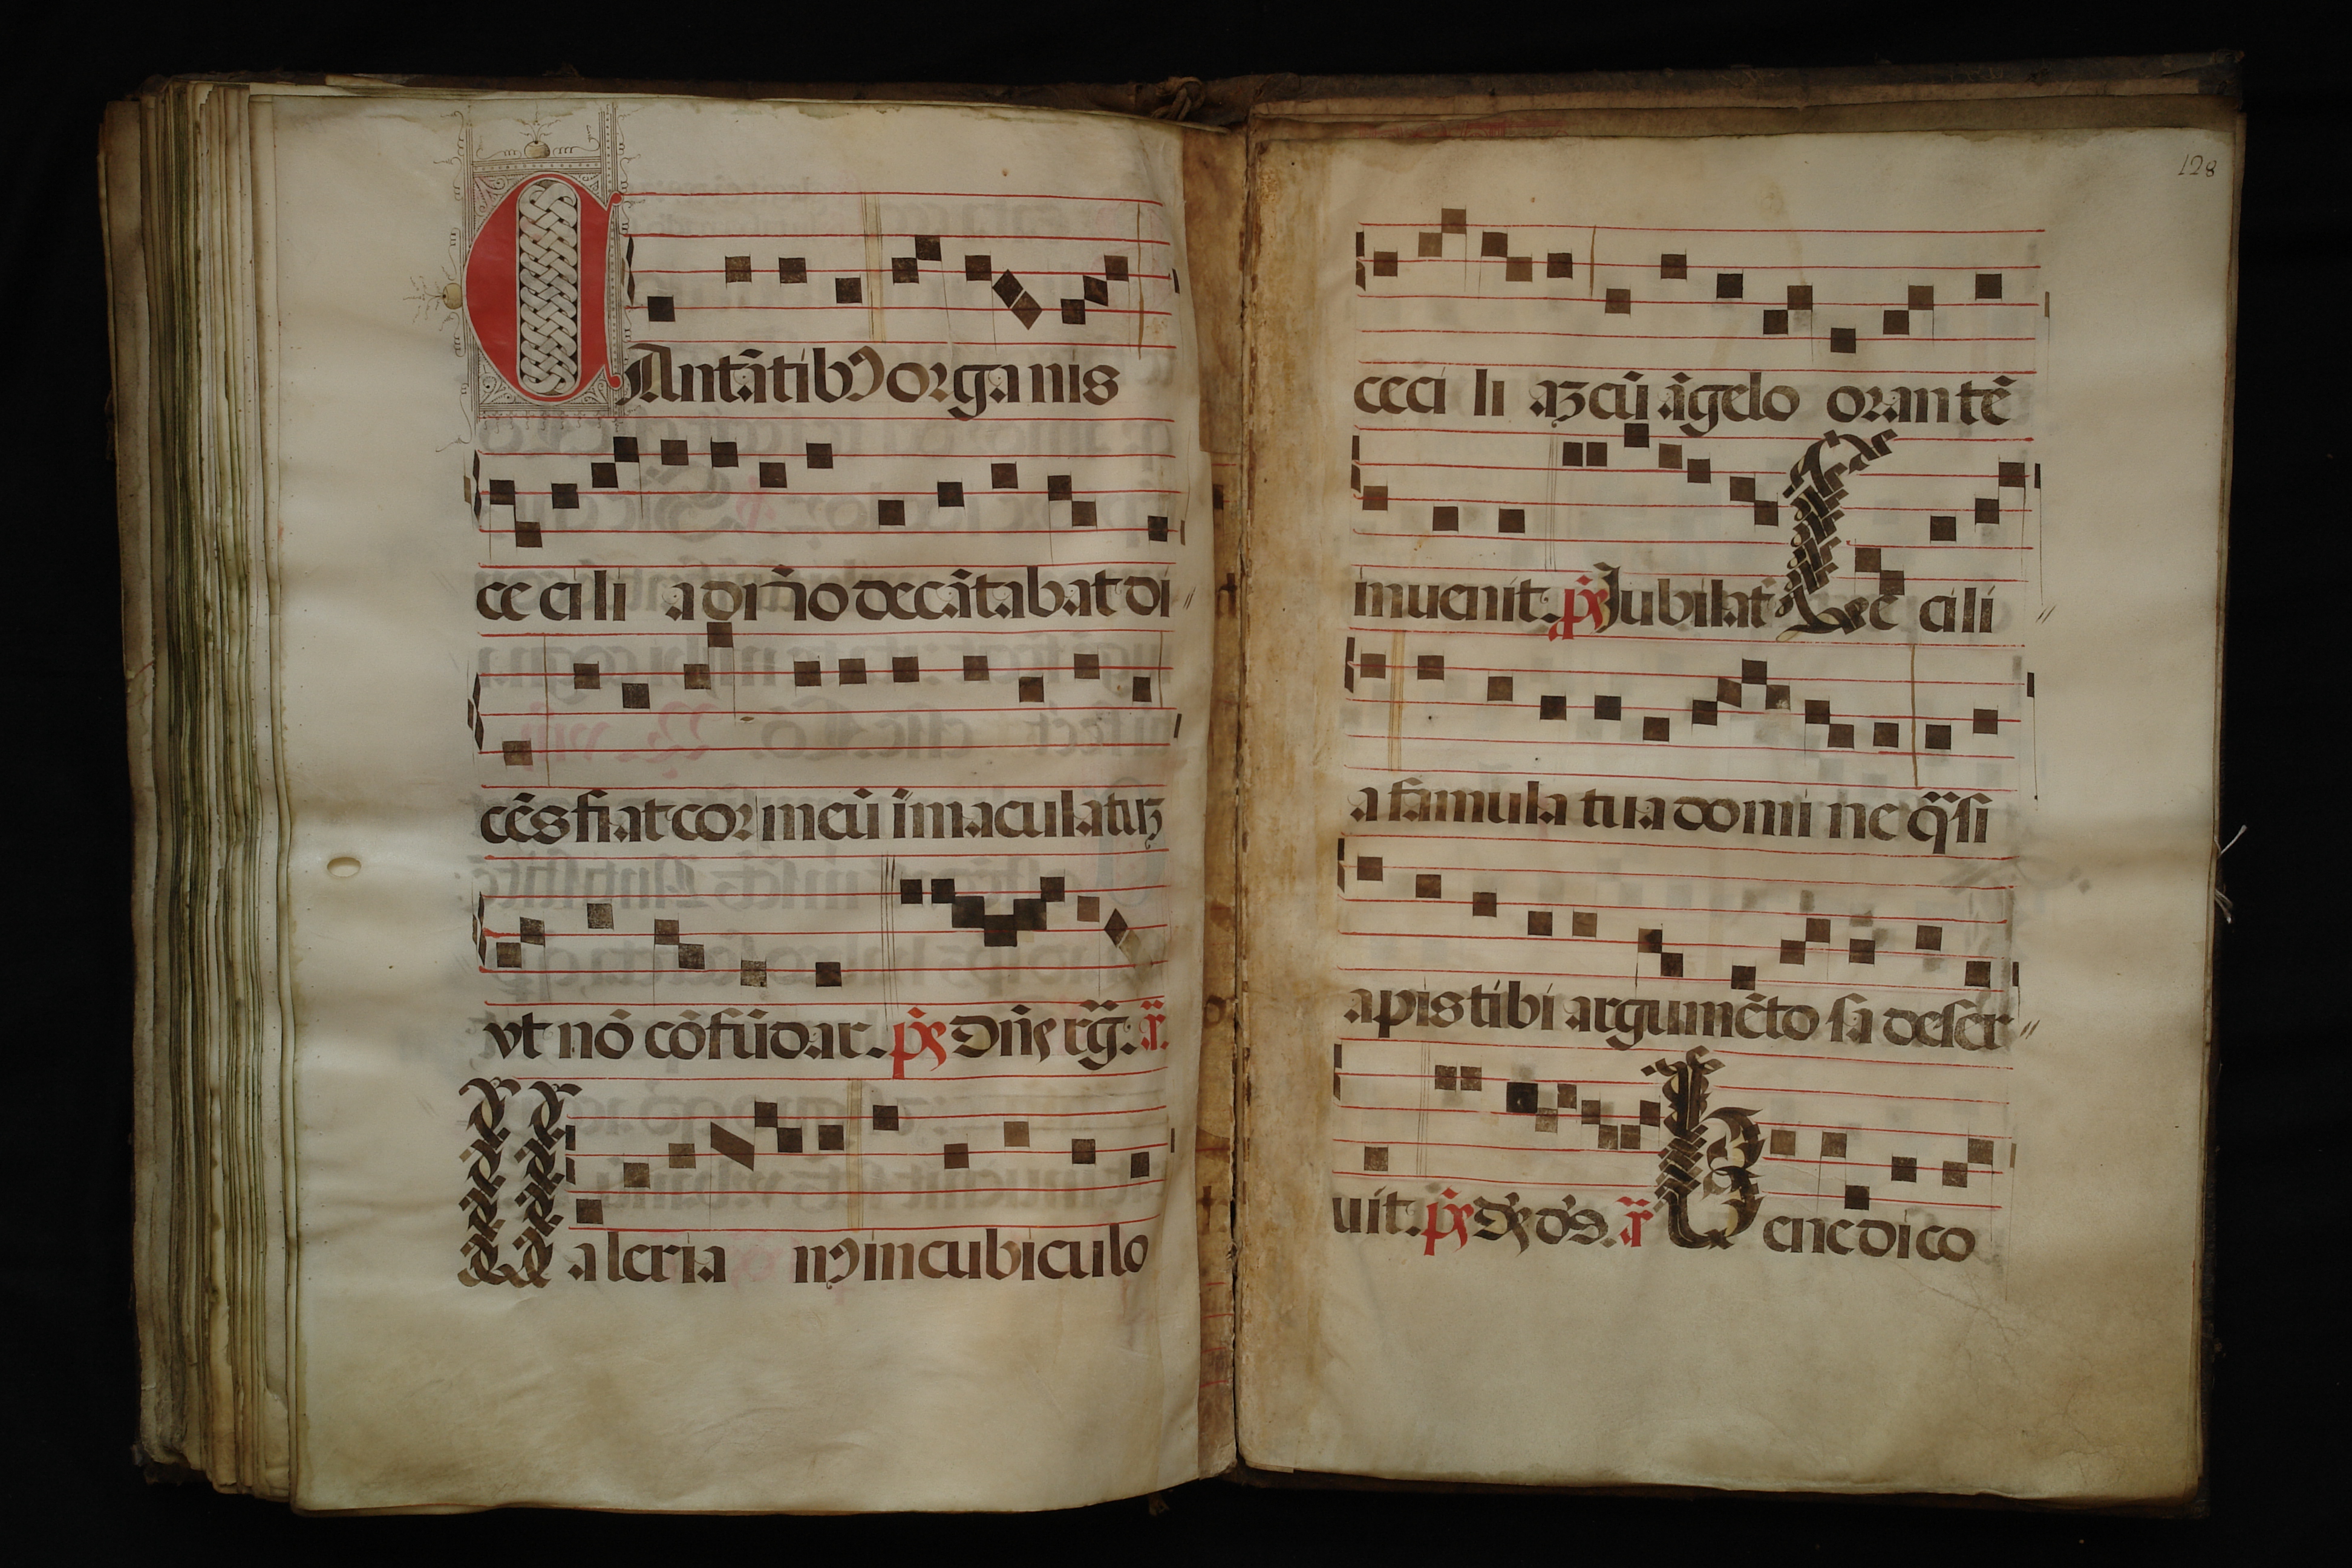 CAntātibꝰ organis
ce ci li a dn̄o decātabat di〃
cēs fiat cor meū īmaculatuꝫ
vt nō cōfūdar. p̄s Dn̄s rḡ. ā.
Valeria nꝰ in cubiculo
128
ceci li aꝫ cū āgelo orantē
inuenit. p̄s Jubilat̄ Cec cili〃
a famula tua domi ne q̄si
apis tibi argumēto sa deser〃
uit. p̄s Ds̄ ds̄. ā Benedico